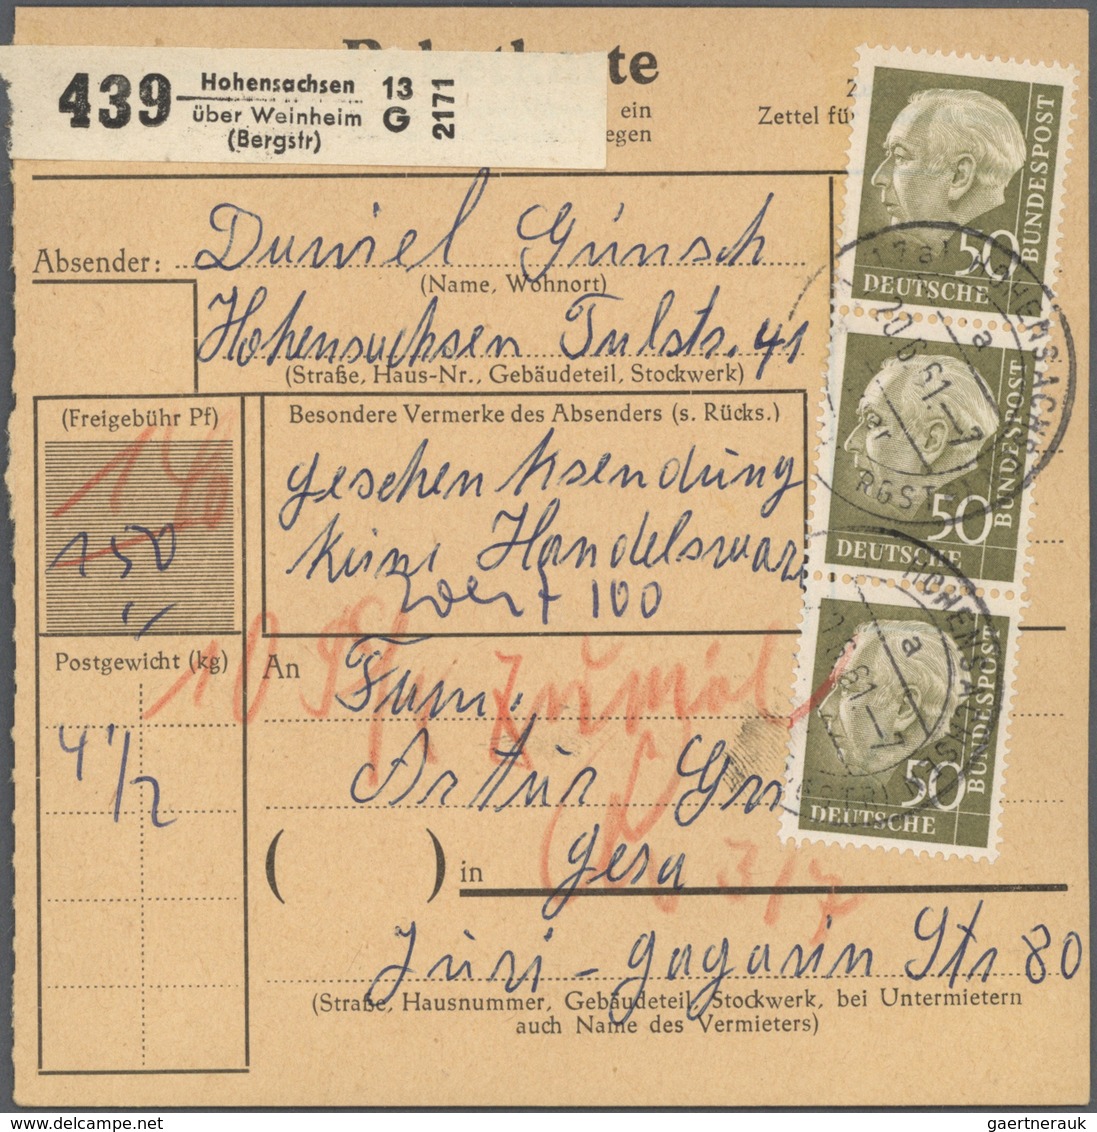 439 Hohensachsen
über Weinheim
(Bergstr)
13
G
2171
te
ein
egen
Zettel fü
Absender: Daniel Günsch
(Name, Wohnort)
Hohensachsen Talstr. 41
(Straße, Haus-Nr., Gebäudeteil, Stockwerk)
(Freigebühr Pf)
150
Besondere Vermerke des Absenders (s. Rücks.)
geschenksendung
keine Handelsware
wert 100
Postgewicht (kg)
4 1/2
An Fam.
Artur
( ) in Gera
3/7
Juri-gagarin Str 80
(Straße, Hausnummer, Gebäudeteil, Stockwerk, bei Untermietern
auch Name des Vermieters)
50
DEUTSCHE
BUNDESPOST
HOHENSACHSEN
a
20.6.61.–7
50
DEUTSCHE
BUNDESPOST
HOHENSACHSEN
a
50
DEUTSCHE
BUNDESPOST
delcampe.net
gaertnerauk